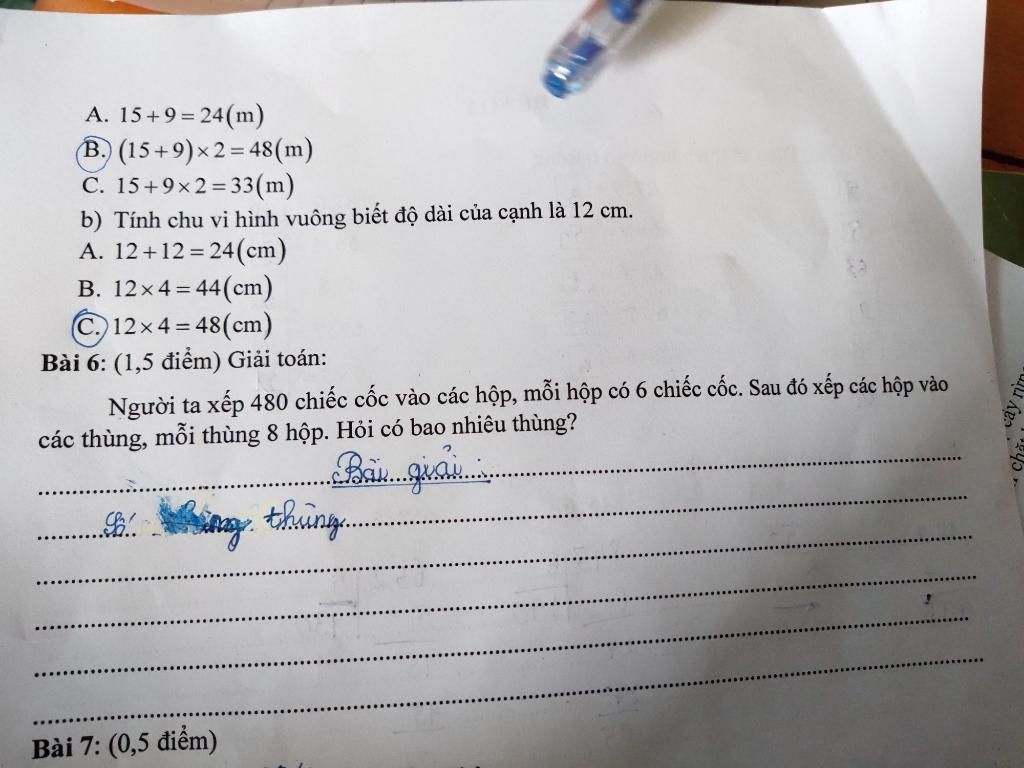 A. 15 + 9 = 24(m)
B. (15 + 9) × 2 = 48(m)
C. 15 + 9 × 2 = 33(m)
b) Tính chu vi hình vuông biết độ dài của cạnh là 12 cm.
A. 12 + 12 = 24(cm)
B. 12 × 4 = 44(cm)
C. 12 × 4 = 48(cm)
Bài 6: (1,5 điểm) Giải toán:
Người ta xếp 480 chiếc cốc vào các hộp, mỗi hộp có 6 chiếc cốc. Sau đó xếp các hộp vào
các thùng, mỗi thùng 8 hộp. Hỏi có bao nhiêu thùng?
Bài giải:
Số thùng
Bài 7: (0,5 điểm)